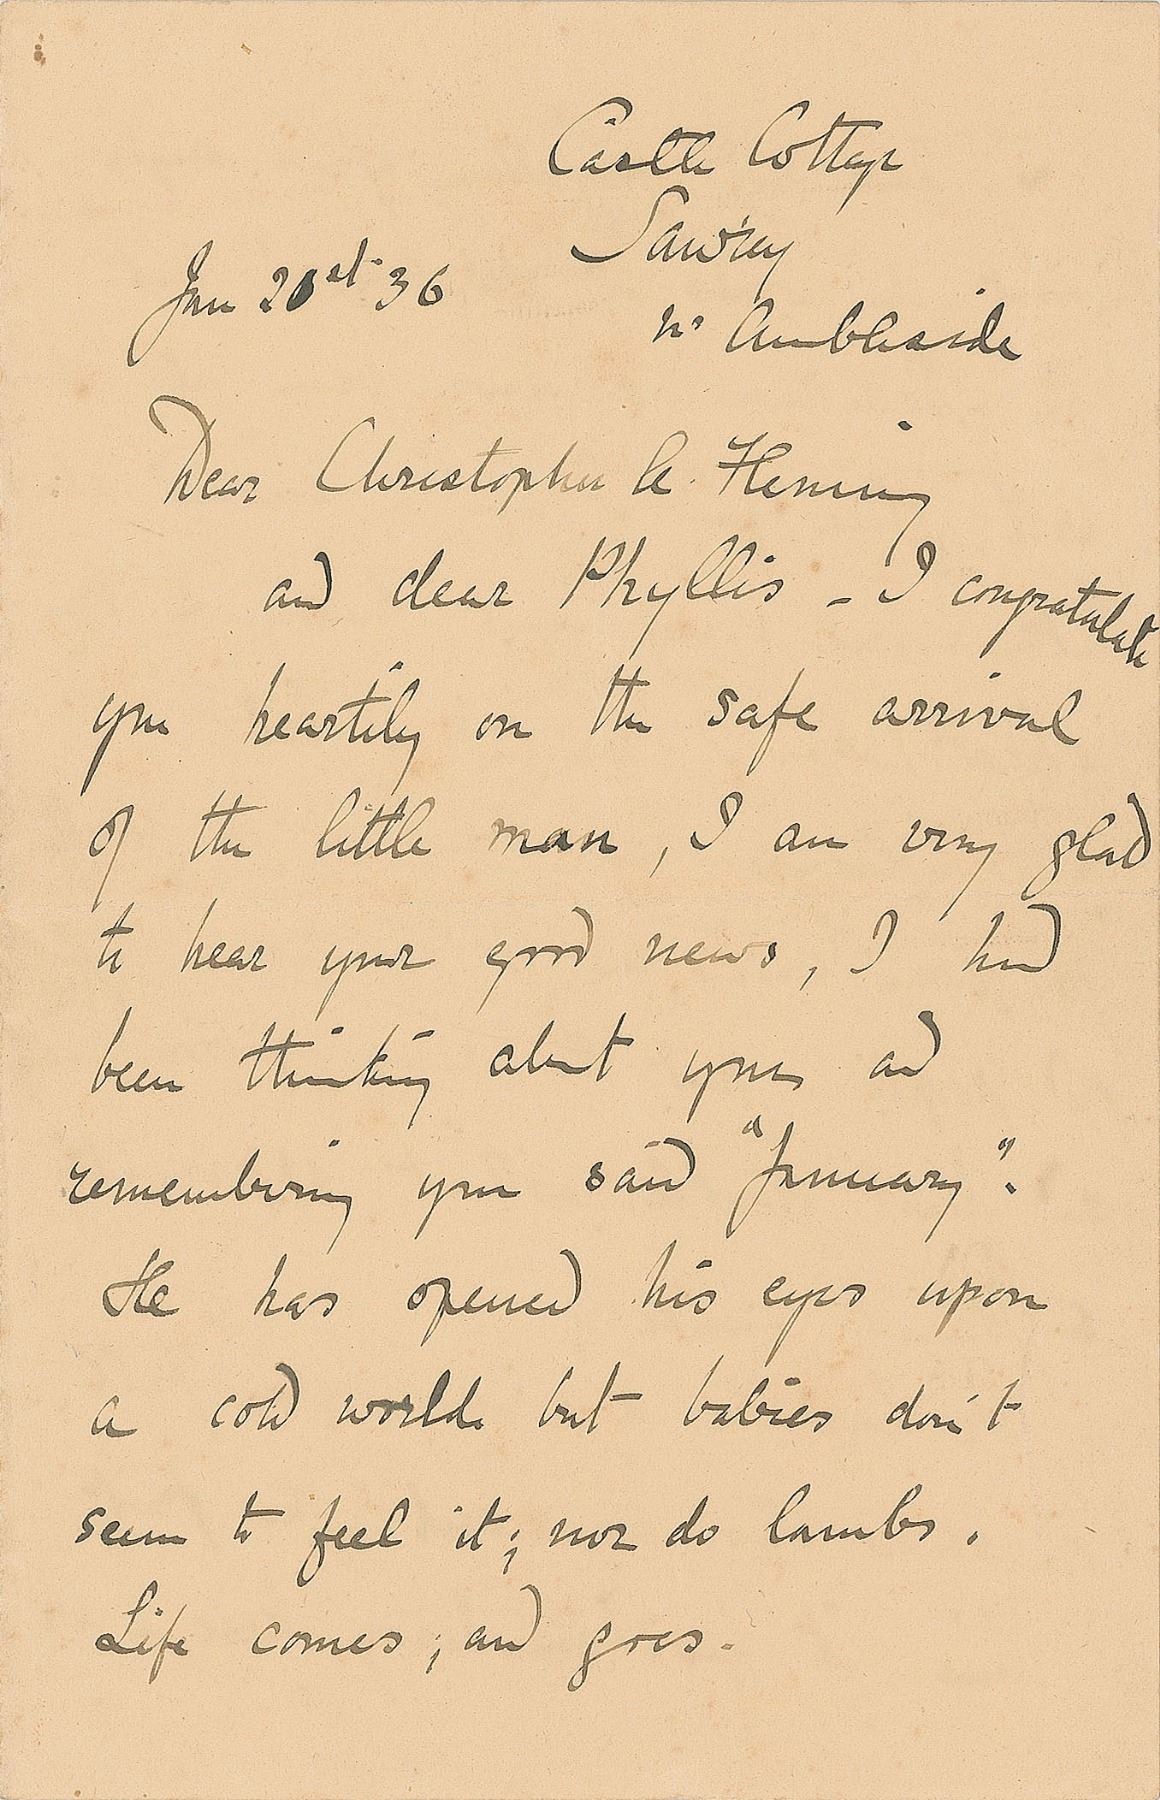 Castle Cottage
Sawrey
Jan 21st 36
nr Ambleside
Dear Christopher le Fleming
and dear Phyllis - I congratulate
you heartily on the safe arrival
of the little man, I am very glad
to hear your good news, I had
been thinking about you and
remembering you said "January".
He has opened his eyes upon
a cold world but babies don't
seem to feel it; nor do lambs.
Life comes; and goes.